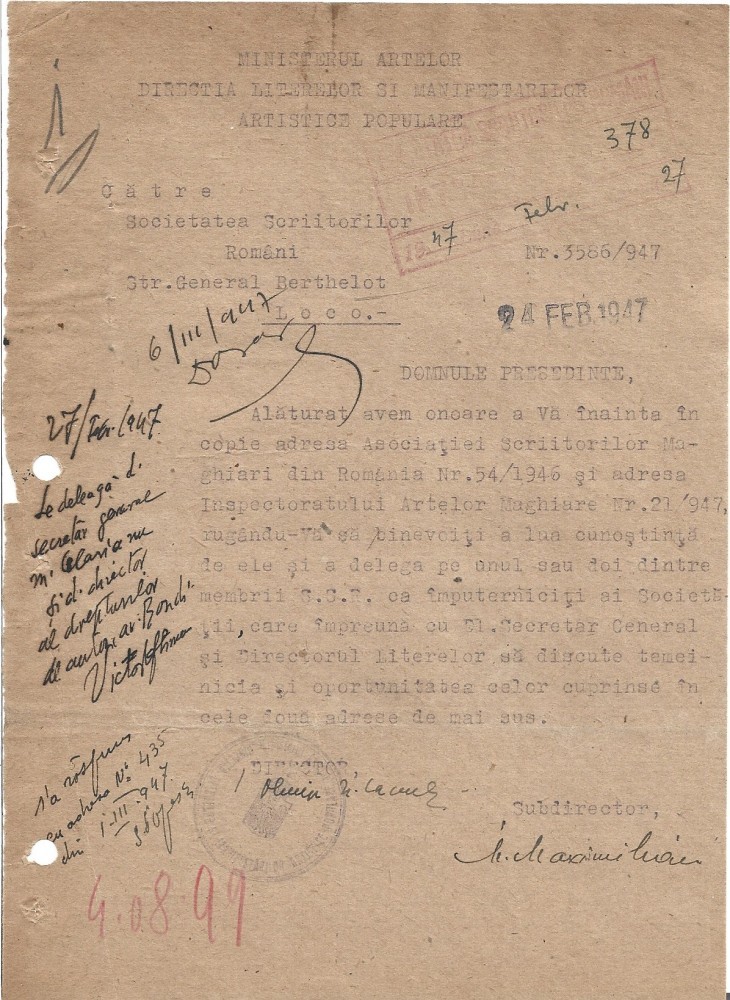 MINISTERUL ARTELOR
DIRECTIA LITERELOR SI MANIFESTARILOR
ARTISTICE POPULARE
378
27
Febr.
1947
Către
Societatea Scriitorilor
Români
Nr.3586/947
Str.General Berthelot
Loco.-
24 FEB.1947
6/III/947
Dosar
DOMNULE PRESEDINTE,
Alăturat avem onoare a Vă înainta în
copie adresa Asociaţiei Scriitorilor Ma-
ghiari din România Nr.54/1946 şi adresa
Inspectoratului Artelor Maghiare Nr.21/947,
rugându-Vă să binevoiţi a lua cunoştinţă
de ele şi a delega pe unul sau doi dintre
membrii S.S.R. ca împuterniciţi ai Societă-
ţii, care împreună cu Dl.Secretar General
şi Directorul Literelor, să discute temei-
nicia şi oportunitatea celor cuprinse în
cele două adrese de mai sus.
27/Febr./947
Se deleagă d.
secretar general
şi d. director
al drepturilor
de autor
Victor Eftimiu
s'a răspuns
cu adresa No 435
din 1-III-947
DIRECTOR
Subdirector,
M. Maximilian
4.08.99